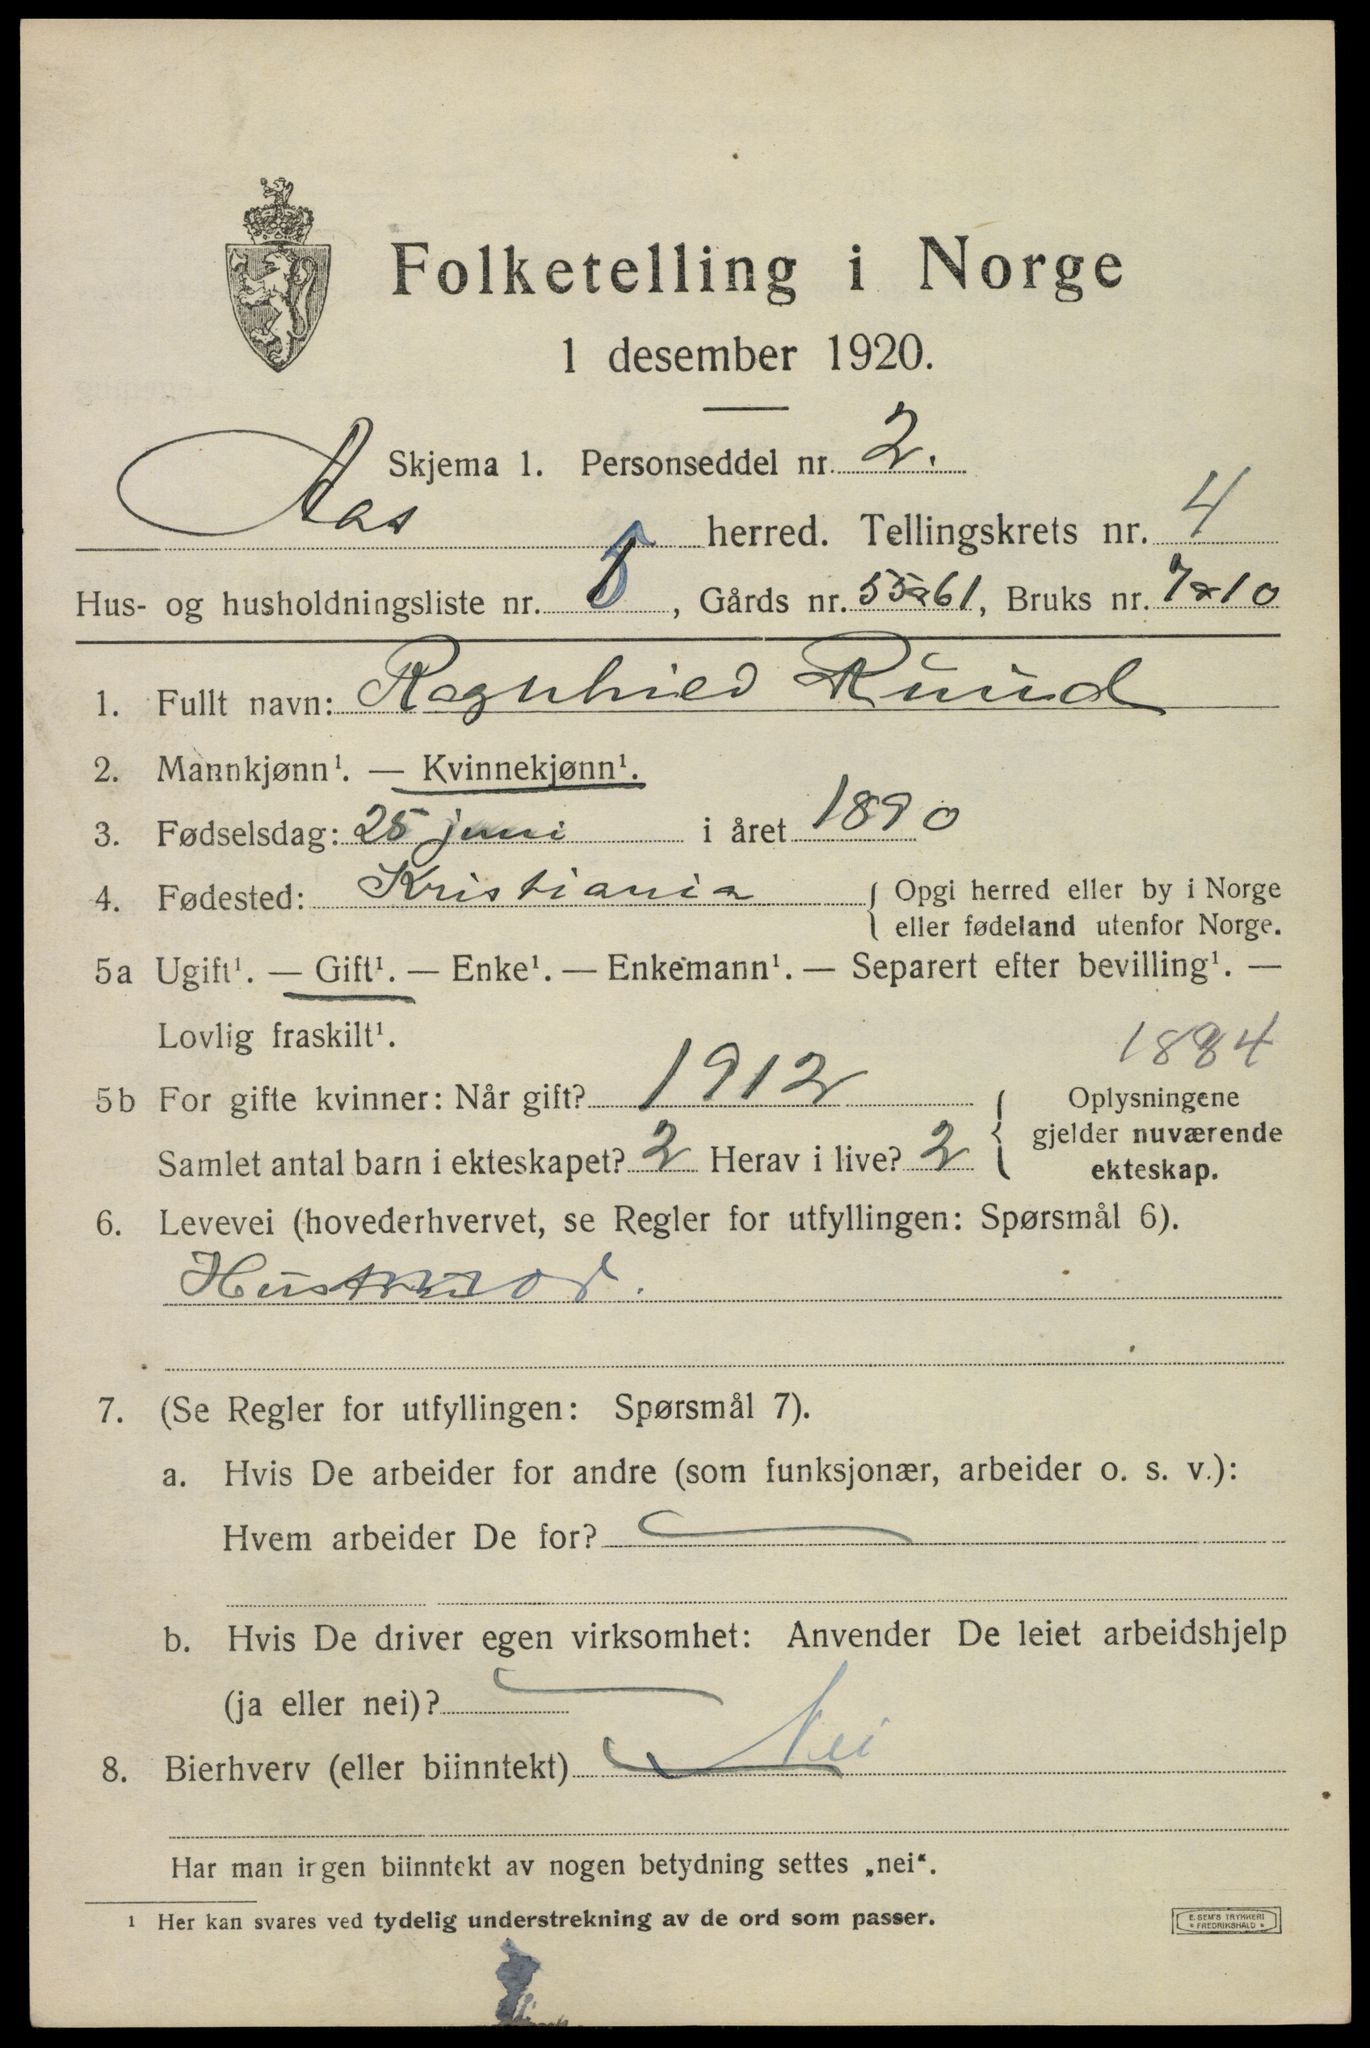 Folketelling i Norge
1 desember 1920.
Skjema 1. Personseddel nr. 2.
Aas herred. Tellingskrets nr. 4
Hus- og husholdningsliste nr. , Gårds nr. 55 & 61, Bruks nr. 7 & 10
1. Fullt navn: Ragnhild Ruud
2. Mannkjønn¹. — Kvinnekjønn¹.
3. Fødselsdag: 25 juni i året 1890
4. Fødested: Kristiania { Opgi herred eller by i Norge
eller fødeland utenfor Norge.
5a Ugift¹. — Gift¹. — Enke¹. — Enkemann¹. — Separert efter bevilling¹. —
Lovlig fraskilt¹.
1884
5b For gifte kvinner: Når gift? 1912 { Oplysningene
gjelder nuværende
Samlet antal barn i ekteskapet? 2 Herav i live? 2
ekteskap.
6. Levevei (hovederhvervet, se Regler for utfyllingen: Spørsmål 6).
Husmor.
7. (Se Regler for utfyllingen: Spørsmål 7).
a. Hvis De arbeider for andre (som funksjonær, arbeider o. s. v.):
Hvem arbeider De for?
b. Hvis De driver egen virksomhet: Anvender De leiet arbeidshjelp
(ja eller nei)?
8. Bierhverv (eller biinntekt) Nei
Har man irgen biinntekt av nogen betydning settes „nei“.
¹ Her kan svares ved tydelig understrekning av de ord som passer.
E. SEM'S TRYKKERI
* FREDRIKSHALD *